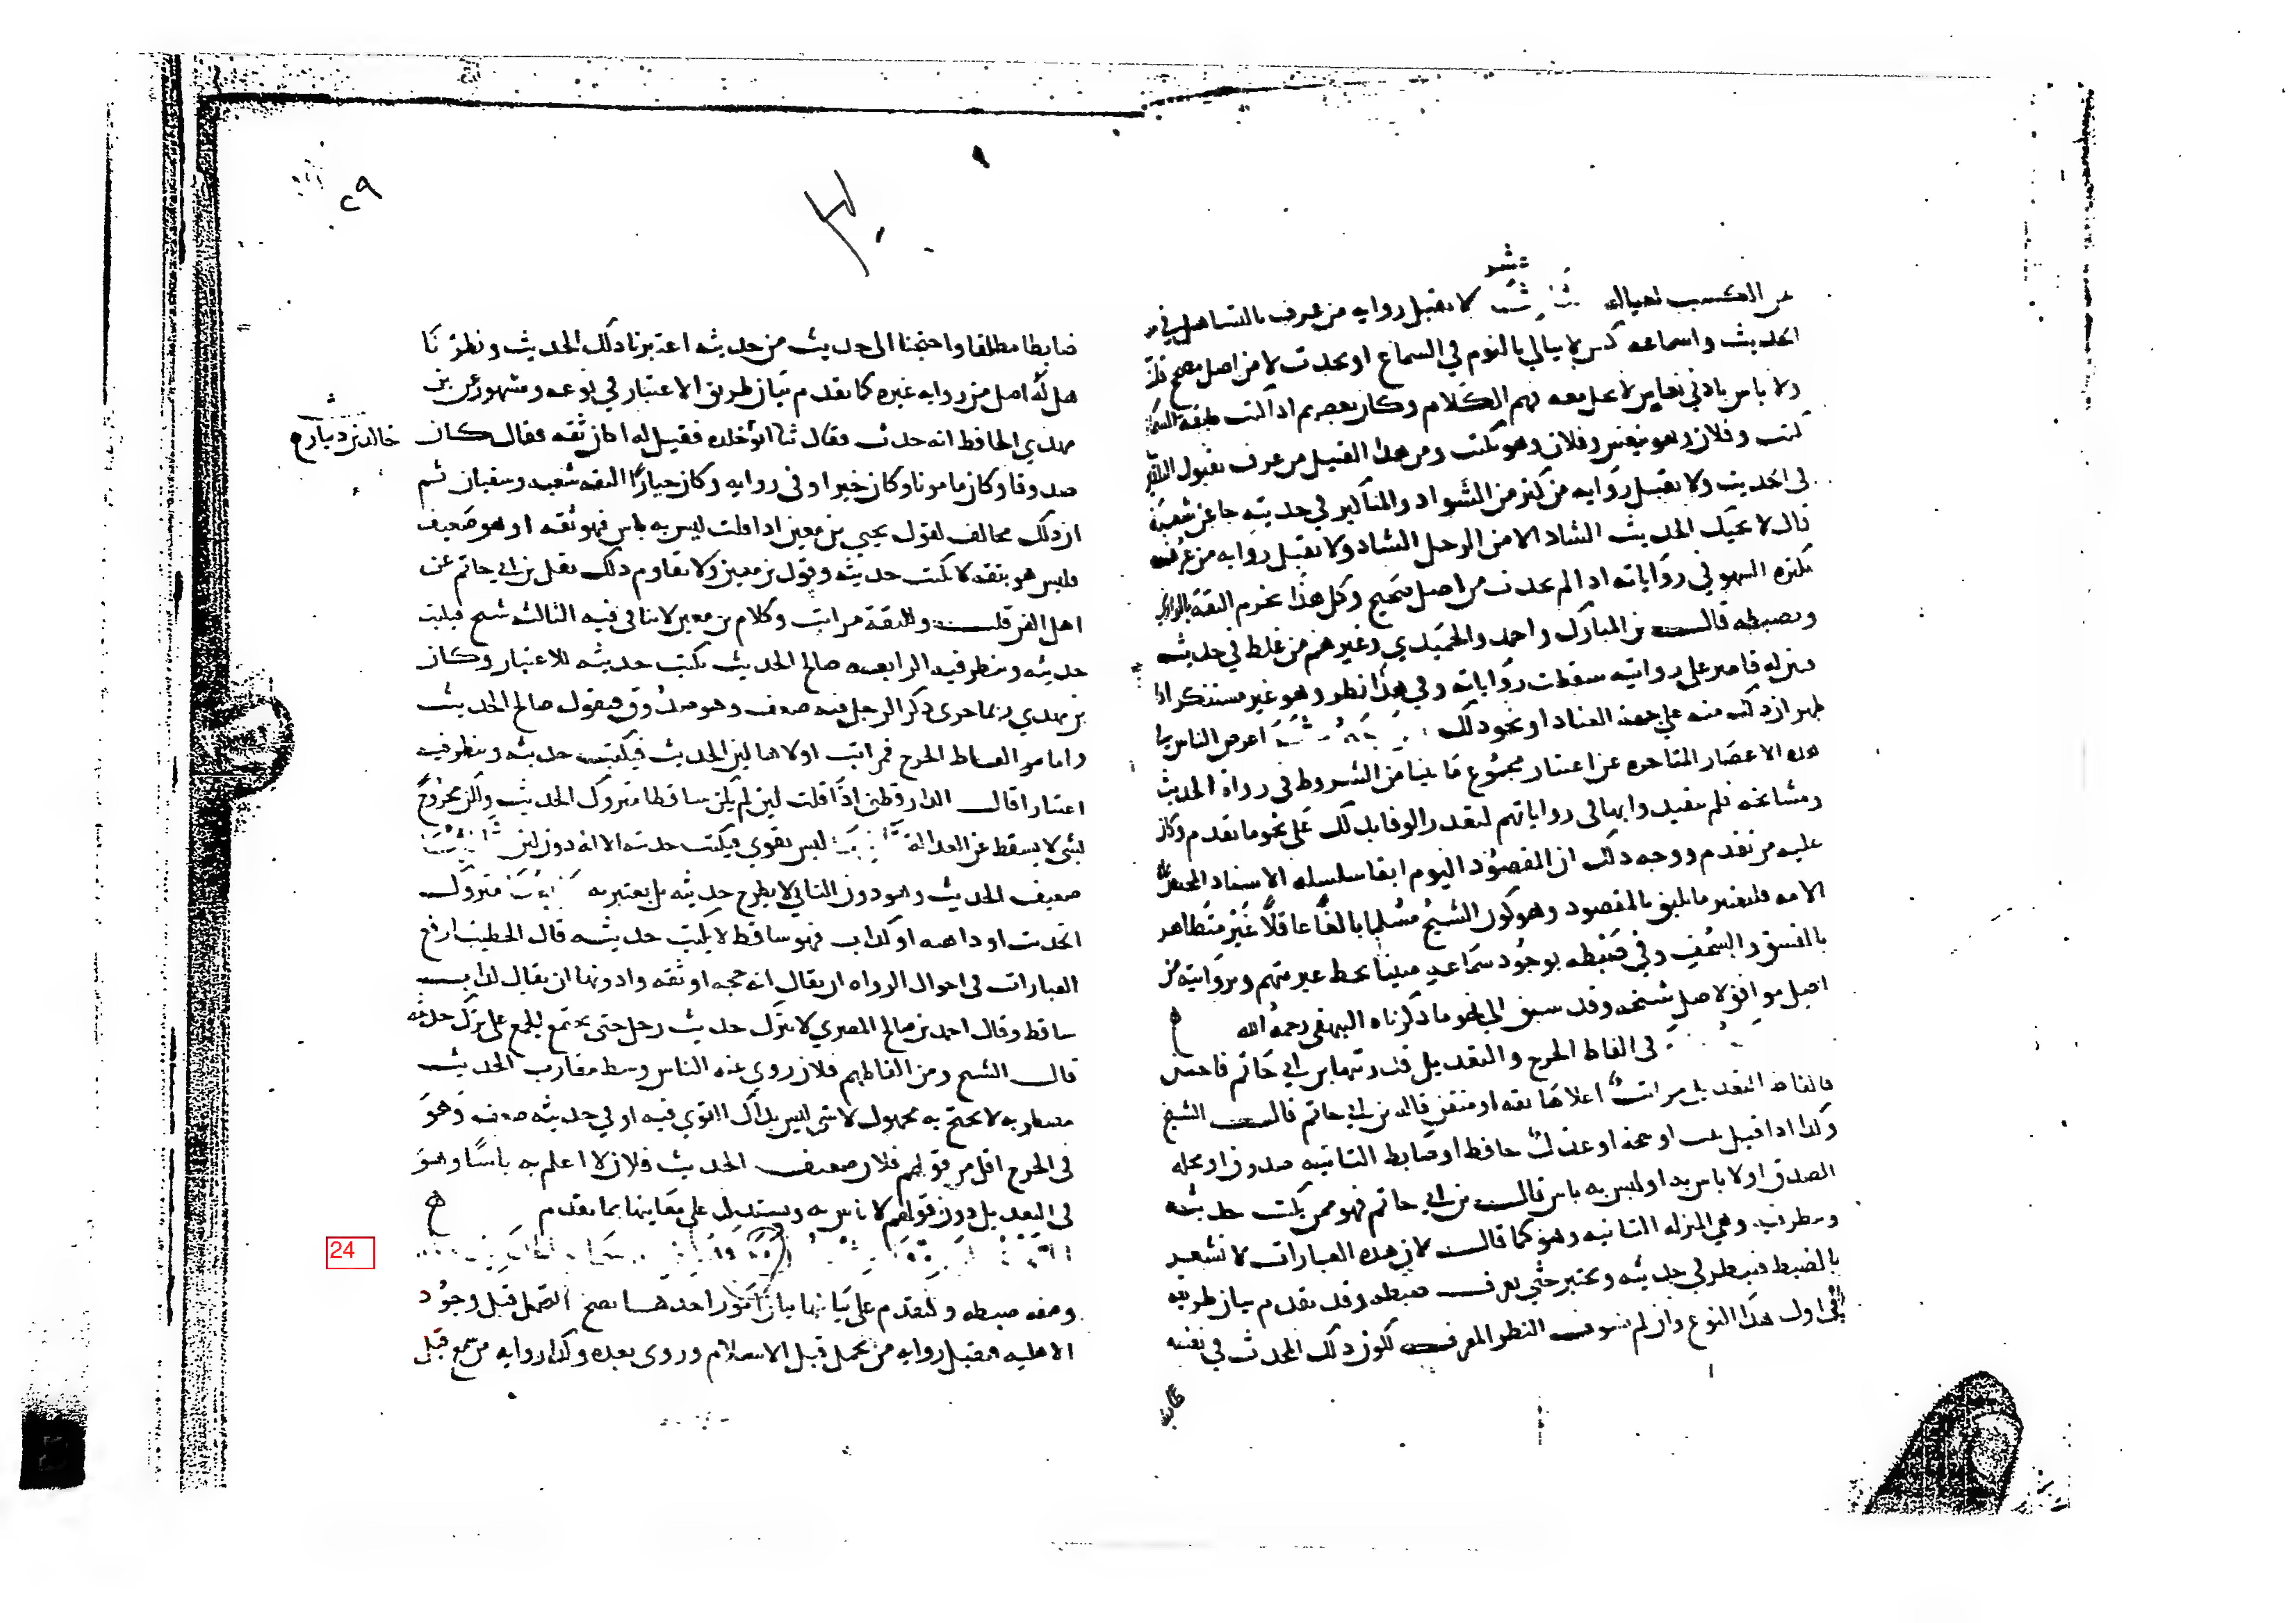 عن التكسب لعياله
عشر
لا تقبل رواية من عرف بالتساهل في
الحديث واسماعه كمن لا يبالي بالنوم في السماع او يحدث لا من اصل مصحح
ولا باس بادنى نعاس لا يختل معه فهم الكلام وكان بعضهم اذا كتب طبقة السماع
كتب وفلان وهو ينعس وفلان وهو يكتب ومن هذا القبيل من عرف بقبول التلقين
في الحديث ولا تقبل رواية من كثرت الشواذ والمناكير في حديثه جا عن شعبة
قال لا يجيك الحديث الشاذ الا من الرجل الشاذ ولا تقبل رواية من عرف
بكثرة السهو في رواياته اذا لم يحدث من اصل صحيح وكل هذا يخرم الثقة بالراوي
وبضبطه قال بن المبارك واحمد والحميدي وغيرهم من غلط في حديثه
فبين له فاصر على روايته سقطت رواياته وفي هذا نظر وهو غير مستنكر اذا
ظهر ان ذلك منه على جهة العناد او نحو ذلك اعرض الناس في
هذه الاعصار المتاخرة عن اعتبار مجموع ما بينا من الشروط في رواة الحديث
ومشايخه فلم يتقيدوا بها في رواياتهم لتعذر الوفا بذلك على نحو ما تقدم وكان
عليه من تقدم ووجه ذلك ان المقصود اليوم ابقا سلسلة الاسناد
الامة فليعتبر ما يليق بالمقصود وهو كون الشيخ مسلما بالغا عاقلا غير متظاهر
بالفسق والسخف وفي ضبطه بوجود سماعه مبينا بخط غير متهم وبروايته من
اصل موافق لاصل شيخه وقد سبق الى نحو ما ذكرناه البيهقي رحمه الله
في الفاظ الجرح والتعديل وقد رتبها بن ابي حاتم فاحسن
فالفاظ التعديل مراتب اعلاها ثقة او متقن قاله بن ابي حاتم قال الشيخ
وكذا اذا قيل ثبت او حجة او عدل حافظ او ضابط الثانية صدوق او محله
الصدق او لا باس به او ليس به باس قال بن ابي حاتم فهو ممن يكتب حديثه
وينظر فيه وهي المنزلة الثانية وهو كما قال لان هذه العبارات لا تشعر
بالضبط فينظر في حديثه ويختبر حتى يعرف ضبطه وقد تقدم بيان طريقه
في اول هذا النوع وان لم نستوف النظر المعرف لكون ذلك المحدث في نفسه
٢٩
ضابطا مطلقا واحتجنا الى حديث من حديثه اعتبرنا ذلك الحديث ونظرنا
هل له اصل من رواية غيره كما تقدم بيان طريق الاعتبار في نوعه ومشهور عن بن
مهدي الحافظ انه حدث فقال ثنا ابو خلده فقيل له اكان ثقة فقال كان
خالد بن دينار
صدوقا وكان مامونا وكان خيرا وفي رواية وكان خيارا الثقة شعبة وسفيان ثم
ان ذلك مخالف لقول يحيى بن معين اذا قلت ليس به باس فهو ثقة او هو ضعيف
فليس هو بثقة لا يكتب حديثه وقول بن معين ولا يقاوم ذلك نقل بن ابي حاتم عن
اهل الفن قلت وللثقة مراتب وكلام بن معين لا ينافي فيه الثالثة شيخ فيكتب
حديثه وينظر فيه الرابعة صالح الحديث يكتب حديثه للاعتبار وكان
بن مهدي ربما جرى ذكر الرجل فيه ضعف وهو صدوق فيقول صالح الحديث
واما الفاظ الجرح فمراتب اولاها لين الحديث فيكتب حديثه وينظر فيه
اعتبارا قال الدارقطني اذا قلت لين لم يكن ساقطا متروك الحديث ولكن مجروحا
بشي لا يسقط عن العدالة ليس بقوي فيكتب حديثه الا انه دون لين
ضعيف الحديث وهو دون الثاني لا يطرح حديثه بل يعتبر به متروك
الحديث او ذاهبه او كذاب فهو ساقط لا يكتب حديثه قال الخطيب ارفع
العبارات في احوال الرواه ان يقال انه حجة او ثقة وادونها ان يقال كذاب
ساقط وقال احمد بن صالح المصري لا يترك حديث رجل حتى يجتمع الجمع على ترك حديثه
قال الشيخ ومن الفاظهم فلان روى عنه الناس وسط مقارب الحديث
مضطربه لا يحتج به مجهول لا شي ليس بذاك القوي فيه او في حديثه ضعف وهو
في الجرح اقل من قولهم فلان ضعيف الحديث فلان لا اعلم به باسا وهو
في التعديل دون قولهم لا باس به ويستدل على معانيها بما تقدم
24
وصفة ضبطه ولنقدم على بيانها بيان امور احدها يصح التحمل قبل وجود
الاهلية فتقبل رواية من تحمل قبل الاسلام وروى بعده وكذا رواية من سمع قبل